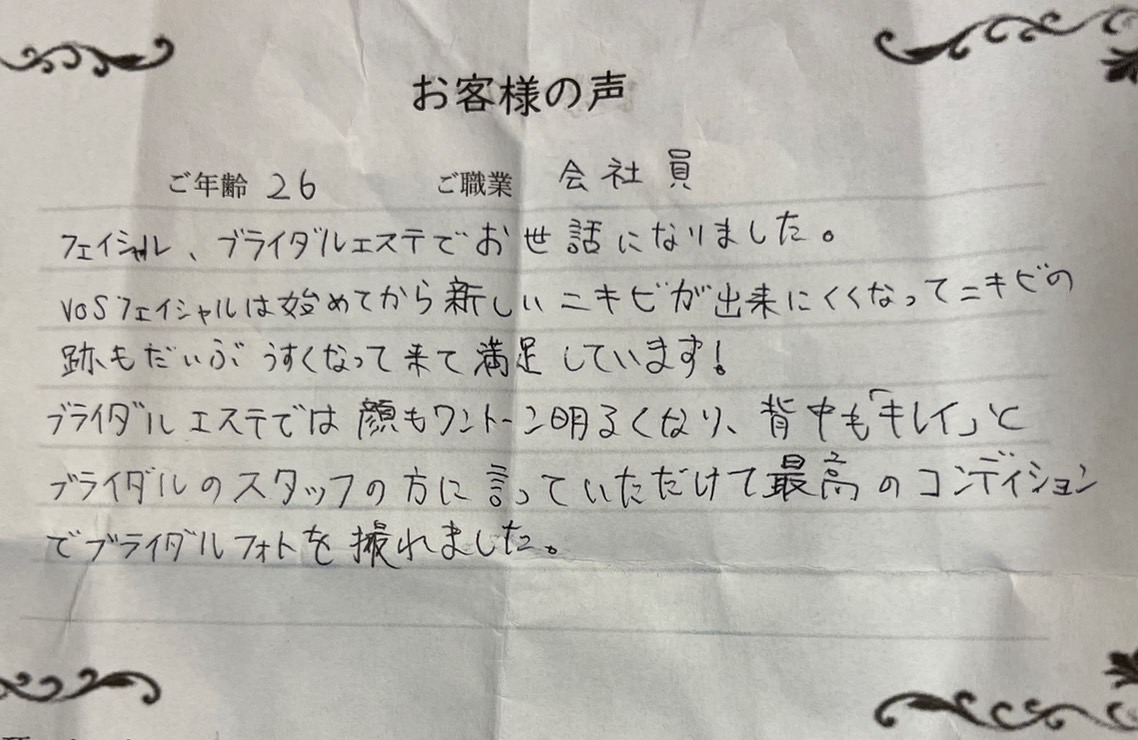 お客様の声
ご年齢 26 ご職業 会社員
フェイシャル、ブライダルエステでお世話になりました。
VOSフェイシャルは始めてから新しいニキビが出来にくくなってニキビの
跡もだいぶうすくなって来て満足しています!
ブライダルエステでは顔もワントーン明るくなり、背中も「キレイ」と
ブライダルのスタッフの方に言っていただけて最高のコンディション
でブライダルフォトを撮れました。